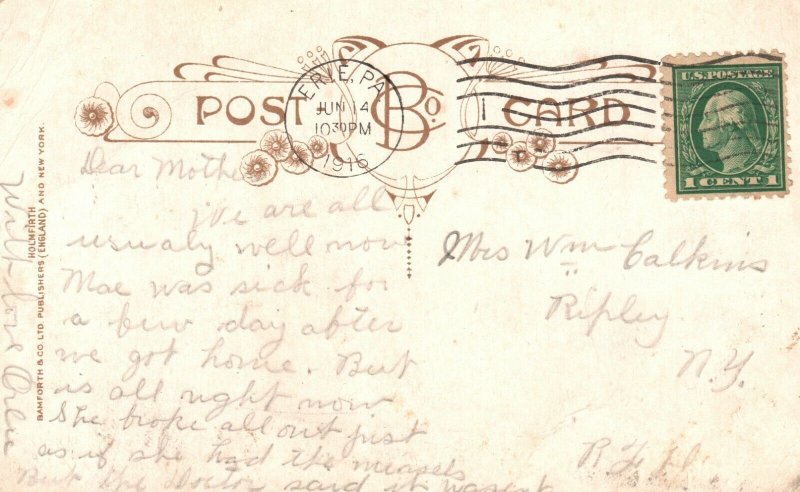 POST CARD
B Co.
ERIE, PA.
JUN 14
1030PM
1916
U.S. POSTAGE
1 CENT 1
HOLMFIRTH
BAMFORTH & CO. LTD. PUBLISHERS (ENGLAND) AND NEW YORK.
Dear Mother
We are all
usualy well now
Mae was sick for
a few day after
we got home. But
is all right now
She broke all out just
as if she had the measels
But the Doctor said it wasent
Mrs Wm Calkins
Ripley
N.Y.
R.F.D